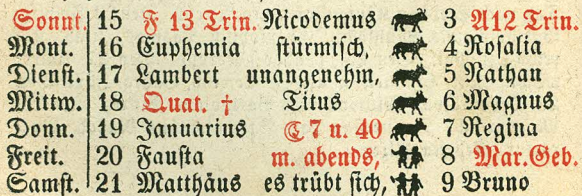 Sonnt. 15 F 13 Trin. Nicodemus 3 A12 Trin.
Mont. 16 Euphemia stürmisch, 4 Rosalia
Dienst. 17 Lambert unangenehm, 5 Nathan
Mittw. 18 Quat. † Titus 6 Magnus
Donn. 19 Januarius ☾ 7 u. 40 7 Regina
Freit. 20 Fausta m. abends, 8 Mar.Geb.
Samst. 21 Matthäus es trübt sich, 9 Bruno